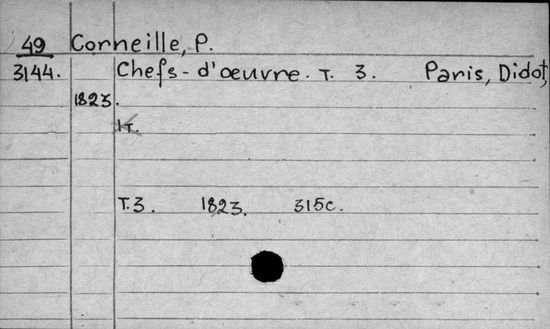 49 Corneille, P.
3144. Chefs-d'œuvre. T. 3. Paris, Didot,
1823.
1т.
T.3. 1823. 315c.